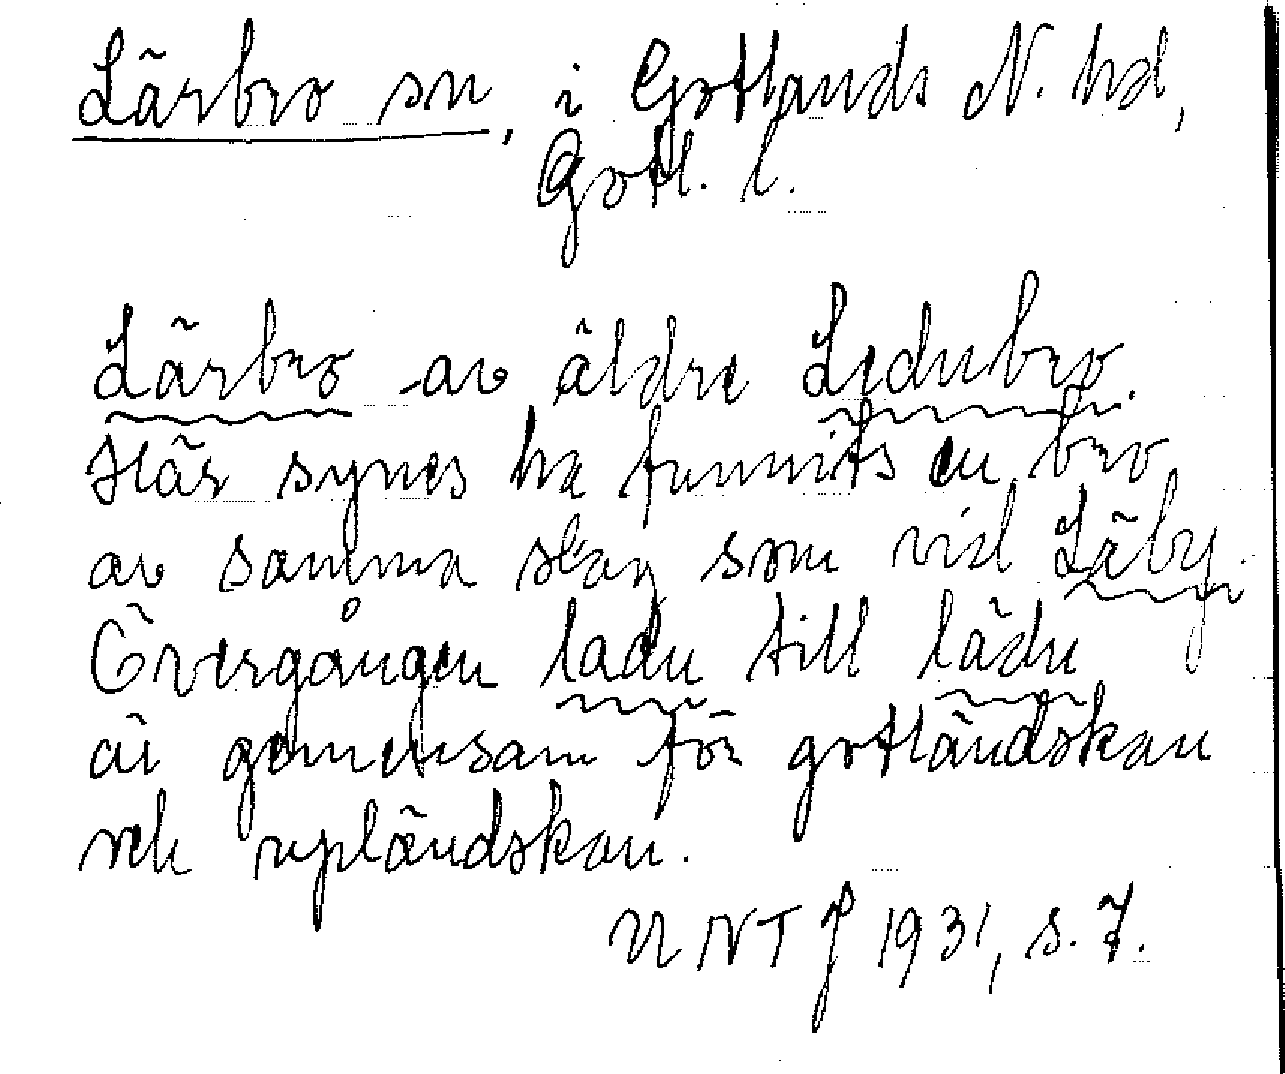 Lärbro sn, i Gotlands N. hd,
Gotl. l.
Lärbro av äldre Ledubro.
Här synes ha funnits en bro
av samma slag som vid Läby.
Övergången ladu till lädu
är gemensam för gotländskan
och uppländskan.
UNT J 1931, s. 7.